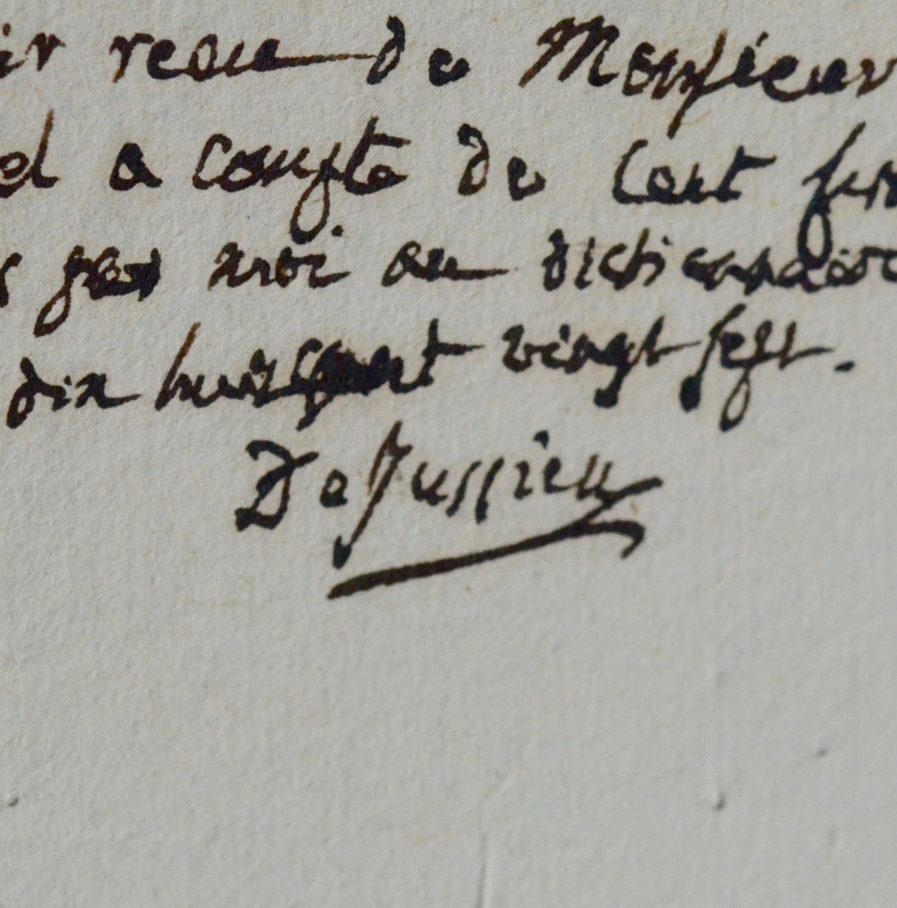 ir reçu de Monsieur
el a compte de cent
par moi au dictionnaire
dix huit cent vingt sept.
De Jussieu